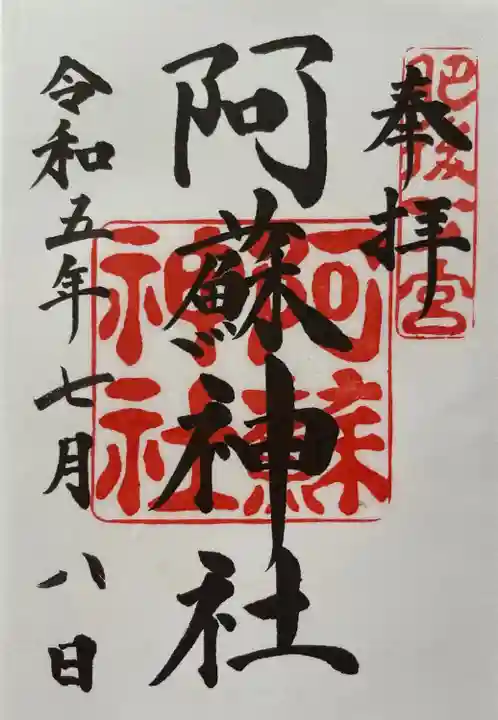 奉拝
肥後一宮
阿蘇神社
阿蘇神社
令和五年七月八日